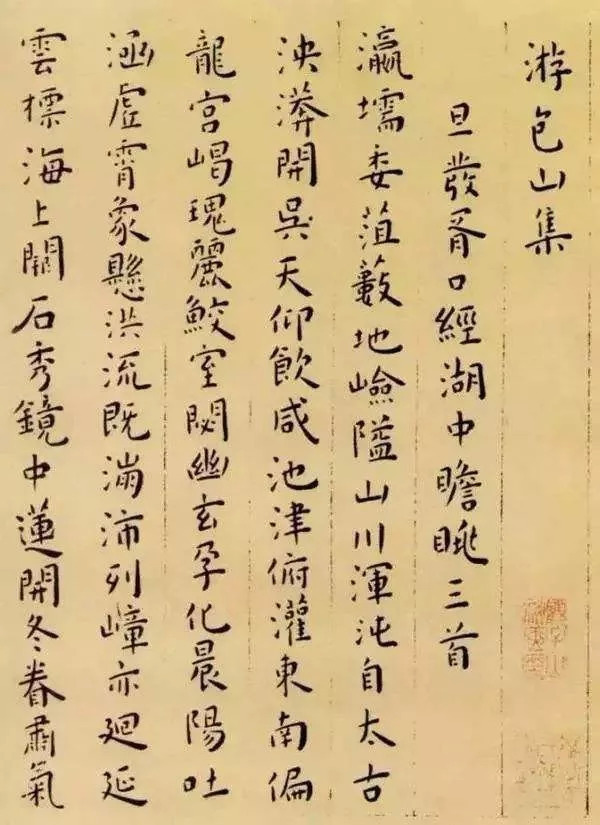 游包山集
旦發胥口經湖中瞻眺三首
瀛壖委菹藪地嶮隘山川渾沌自太古
泱漭開吳天仰飲咸池津俯灌東南偏
龍宮嵑瑰麗鮫室閟幽玄孕化晨陽吐
涵虛霄象懸洪流既湍沛列嶂亦廻延
雲標海上闕石秀鏡中蓮開冬眷肅氣